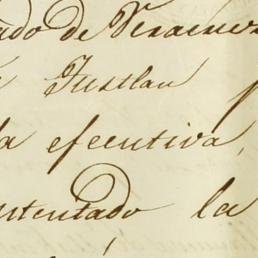 ado de Veracruz
Tustlan
la efecutiva,
ntentado la